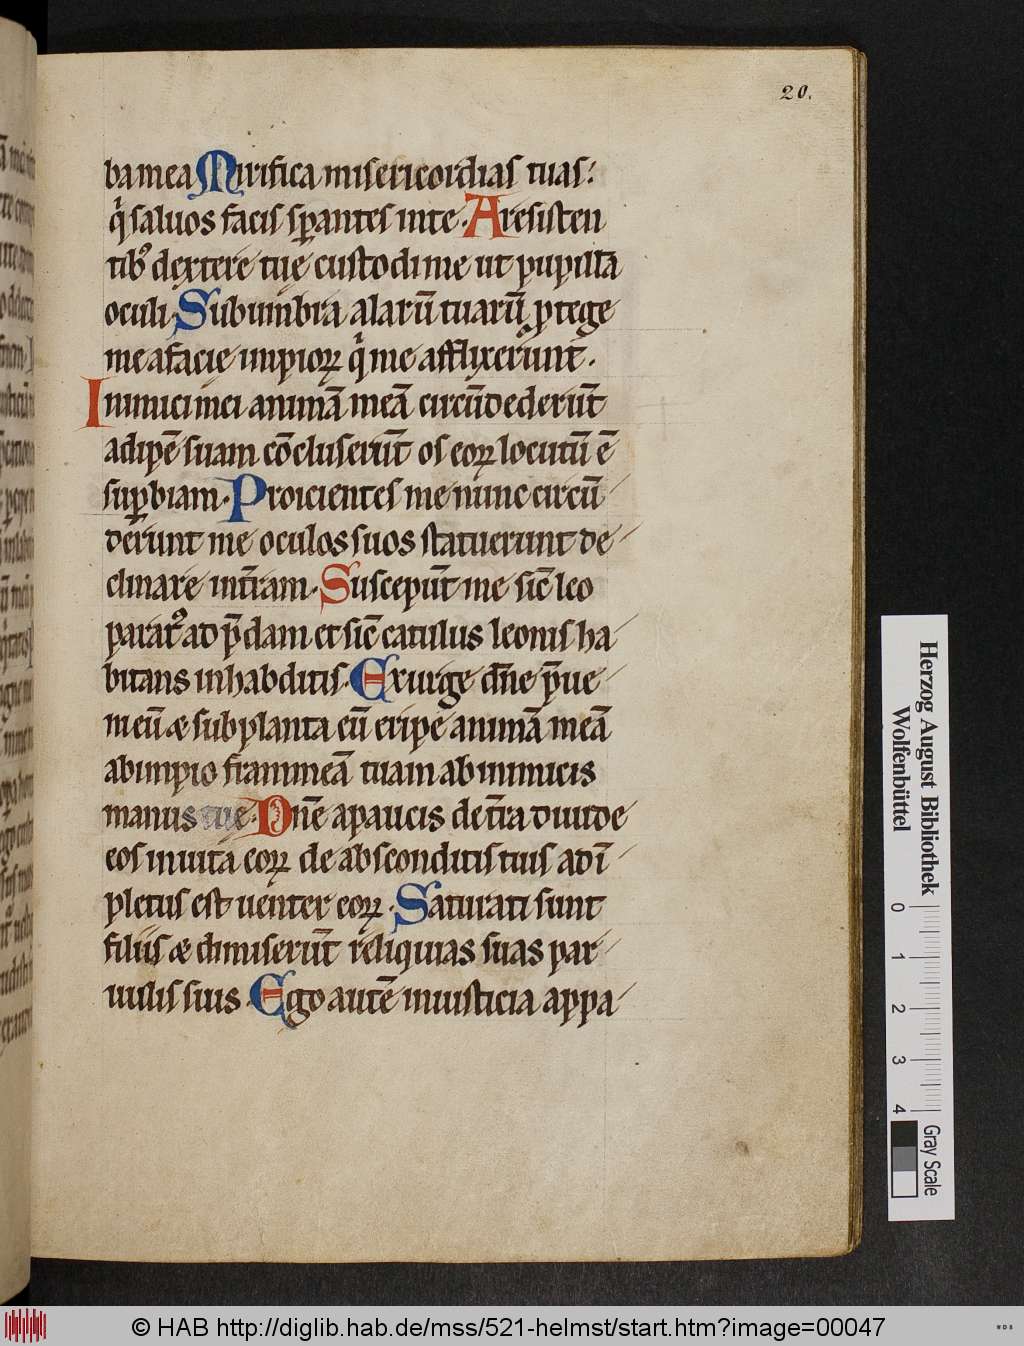 20.
ba mea Mirifica misericordias tuas:
q̇ saluos facis sꝑantes in te. A resisten
tibꝰ dextere tue custodi me ut pupillā
oculi. Sub umbra alarū tuarū ꝓtege
me a facie impioꝝ q̇ me afflixerunt.
Inimici mei animā meā circūdederūt
adipē suam cōcluserūt os eoꝝ locutū ē
suꝑbiam. Proicientes me nunc circū
derunt me oculos suos statuerunt de
clinare in t̄ram. Susceperūt me sic̄ leo
paratꝰ ad p̄dam et sic̄ catulus leonis ha
bitans in habditis. Exurge dn̄e p̄ue
meū & subplanta eū eripe animā meā
ab impio frammeā tuam ab inimicis
manus tue. Dn̄e a paucis de t̄ra diuide
eos in uita eoꝝ de absconditis tuis adī
pletus est uenter eoꝝ. Saturati sunt
filiis & dimiserūt reliquias suas par
uulis suis. Ego autē in iusticia appa
Herzog August Bibliothek
Wolfenbüttel
0 1 2 3 4
Gray Scale
© HAB http://diglib.hab.de/mss/521-helmst/start.htm?image=00047